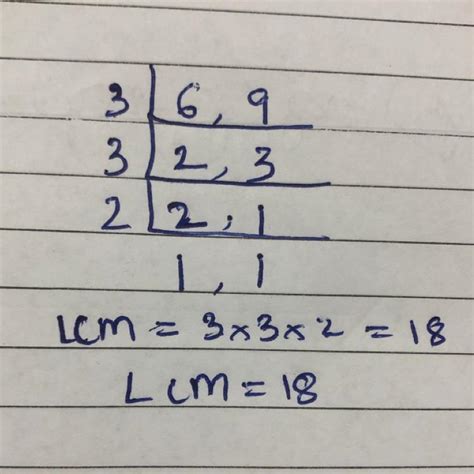 3 | 6, 9
3 | 2, 3
2 | 2, 1
1, 1
LCM = 3×3×2 = 18
LCM = 18